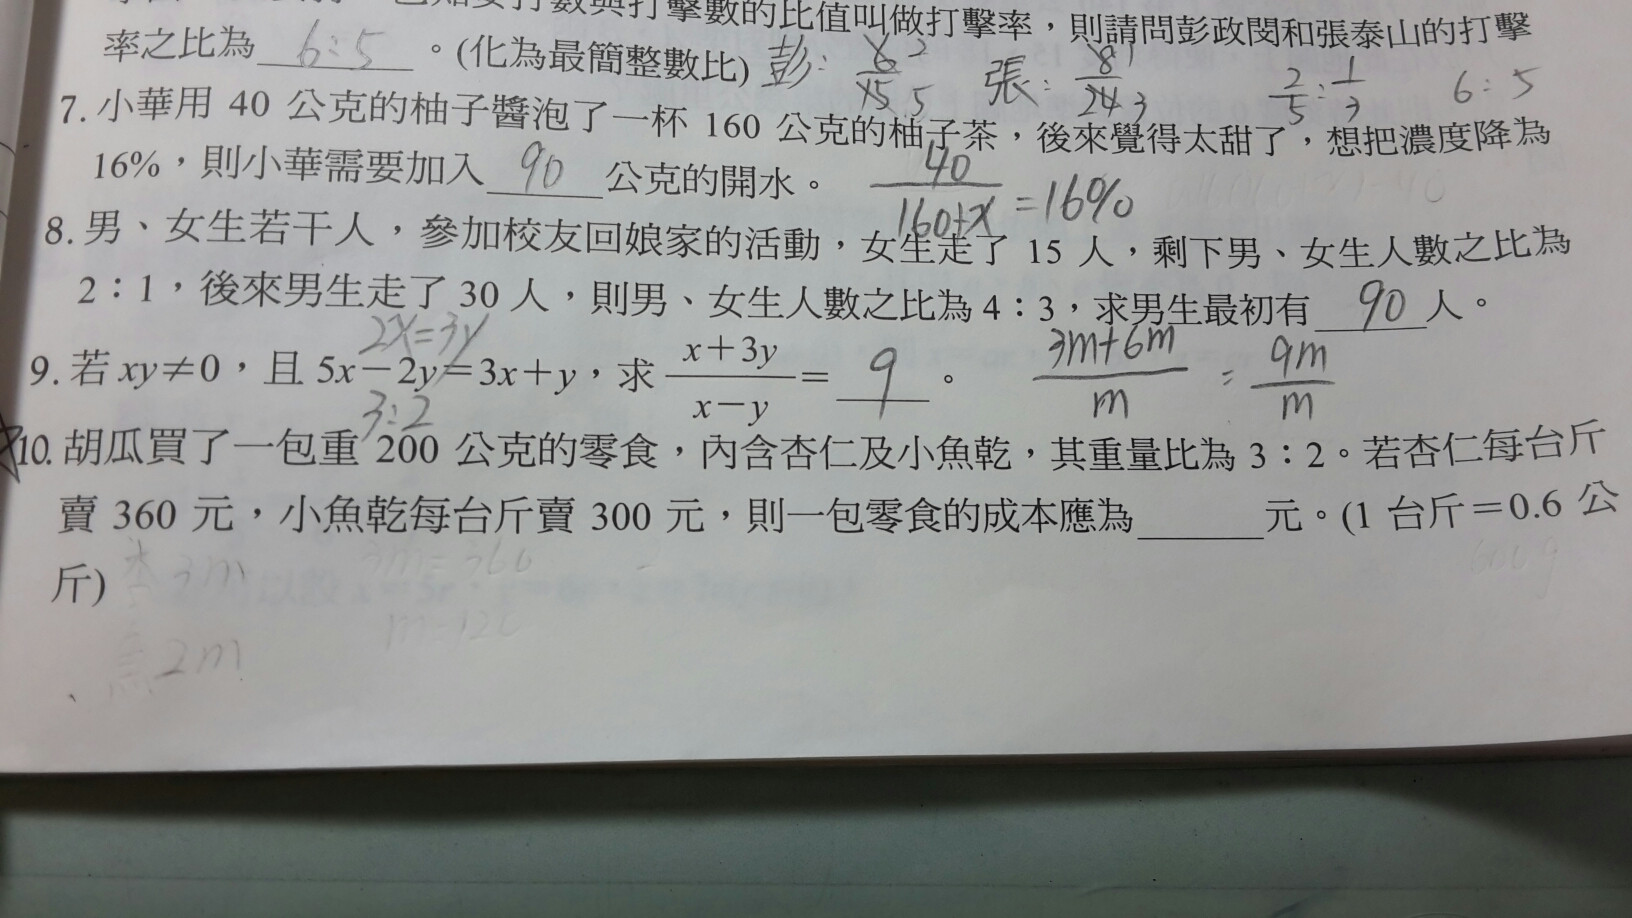 打數與打擊數的比值叫做打擊率，則請問彭政閔和張泰山的打擊
率之比為 6:5 。(化為最簡整數比) 彭: 6 2 / 15 5 張: 8 1 / 24 3 2/5 : 1/3 6:5
7. 小華用 40 公克的柚子醬泡了一杯 160 公克的柚子茶，後來覺得太甜了，想把濃度降為
16%，則小華需要加入 90 公克的開水。 40/160+x =16%
8. 男、女生若干人，參加校友回娘家的活動，女生走了 15 人，剩下男、女生人數之比為
2：1，後來男生走了 30 人，則男、女生人數之比為 4：3，求男生最初有 90 人。
2x=3y
9. 若 xy≠0，且 5x－2y＝3x＋y，求 x＋3y/x－y ＝ 9 。 3m+6m/m = 9m/m
3:2
10. 胡瓜買了一包重 200 公克的零食，內含杏仁及小魚乾，其重量比為 3：2。若杏仁每台斤
賣 360 元，小魚乾每台斤賣 300 元，則一包零食的成本應為 元。(1 台斤＝0.6 公
斤) 杏 3m 3m=360
m=120
魚 2m